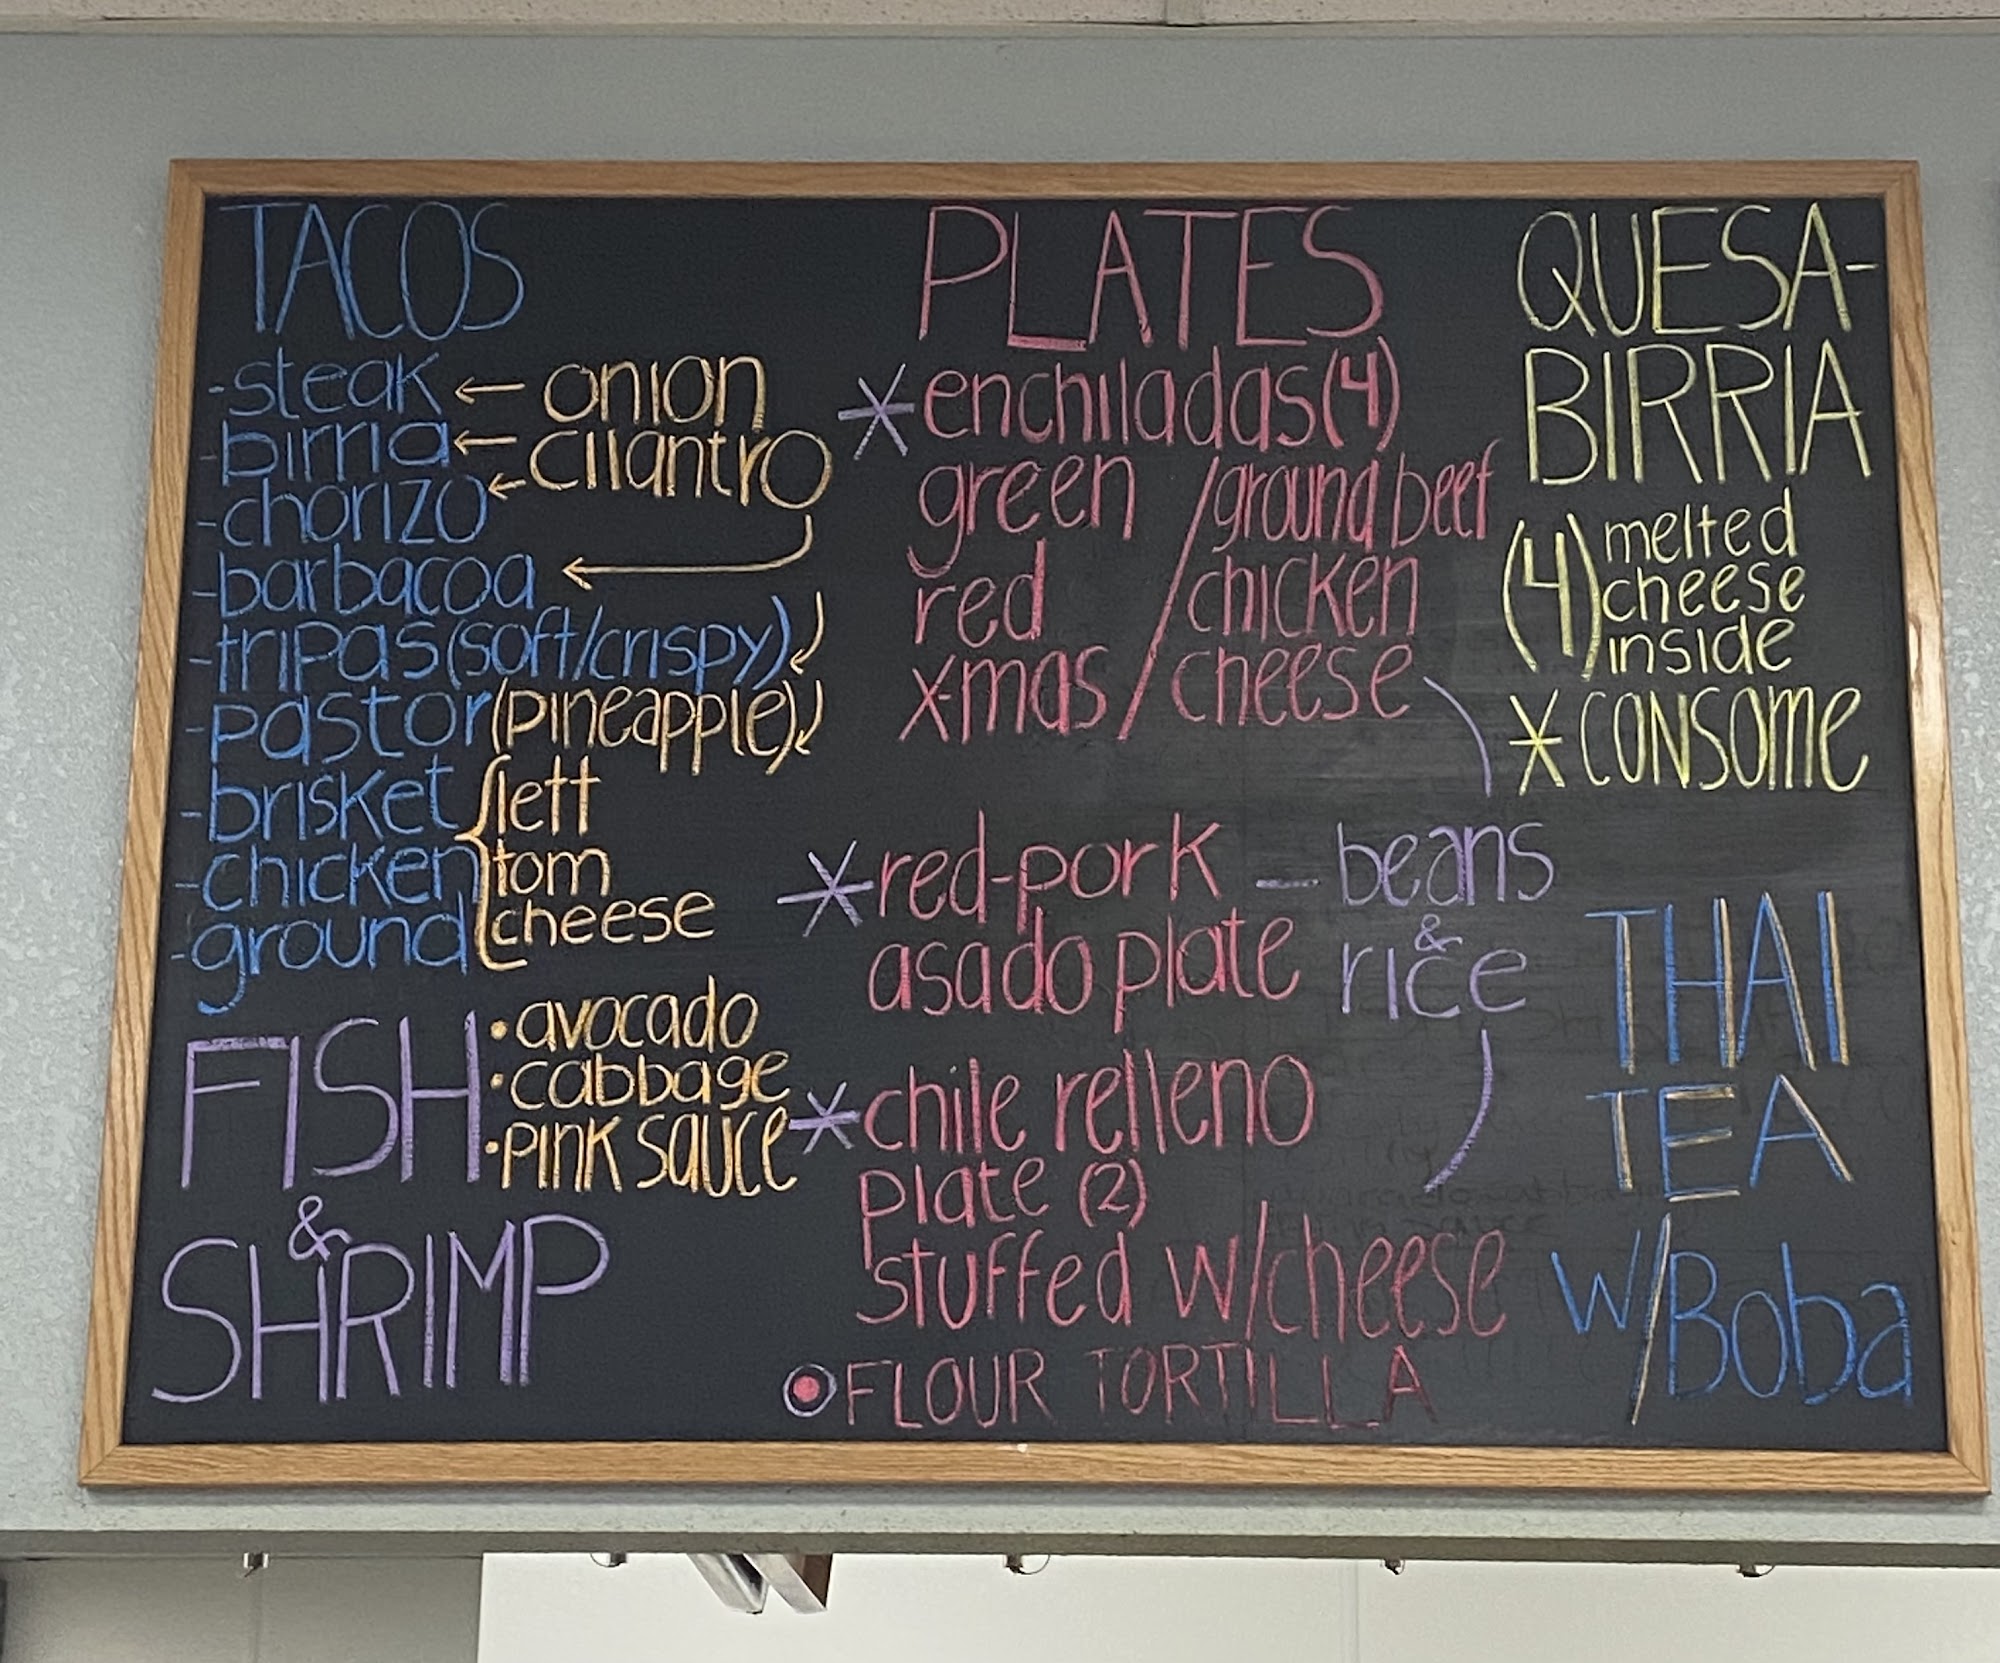 TACOS
-steak ← onion
-birria ← cilantro
-chorizo
-barbacoa
-tripas (soft/crispy)
-pastor (pineapple)
-brisket { lett
-chicken tom
-ground cheese
FISH • avocado
• cabbage
• PINK SAUCE
&
SHRIMP
PLATES
* enchiladas (4)
green / ground beef
red / chicken
x-mas / cheese
* red-pork — beans
&
asado plate rice
* chile relleno
plate (2)
stuffed w/cheese
FLOUR TORTILLA
QUESA-
BIRRIA
(4) melted
cheese
inside
* CONSOME
THAI
TEA
W/Boba